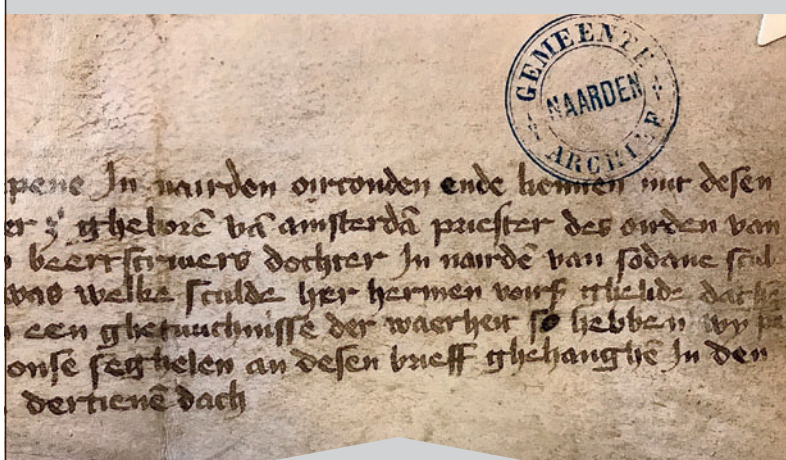 GEMEENTE ARCHIEF
NAARDEN
pene In nairden oirconden ende kennen mit desen
er gheborē vā amsterdā priester des oirden van
beertscriuers dochter In nairdē van sodane scul
was welke sculde her hermen voirs ghelide dat
een ghetuuchnisse der waerheit so hebben wy
onse seghelen an desen brieff ghehanghē In den
dertienē dach